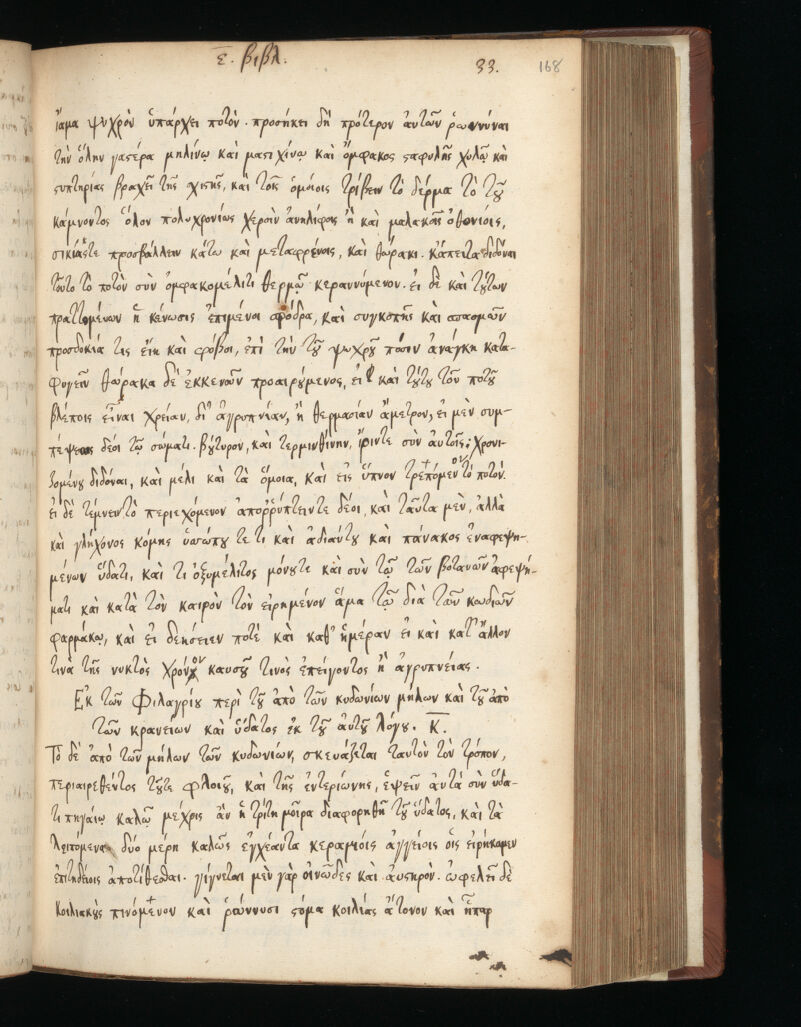 ε. βιβλ.
33. 168
ἴαμα ψυχρὸν ὑπάρχει ποτὸν. προσήκει δὴ πρότερον αὐτῶν ῥωννύναι
τὴν ὅλην γαστέρα μηλίνῳ καὶ μαστιχίνῳ καὶ ὄμφακος σταφυλῆς χυλῷ καὶ
στυπτηρίας βραχεῖ τῆς σχιστῆς, καὶ τοῖς ὁμοίοις τρίβειν τὸ δέρμα τὸ τοῦ
κάμνοντος ὅλον πολυχρονίως χερσὶν ἀνηλίφοις ἢ καὶ μαλακοῖς ὀθονίοις,
σικίας τε προσβάλλειν κάτω καὶ μεταφρένοις, καὶ θώρακι. κἄπειτα διδόναι
τοῦτο τὸ ποτὸν σὺν ὀμφακομέλιτι θερμῷ κεραννύμενον. εἰ δὲ καὶ τούτων
πραττομένων ἡ κένωσις ἐπιμένοι σφόδρα, καὶ συγκοπῆς καὶ σπασμῶν
προσδοκία τις εἴη καὶ φόβοι, ἐπὶ τὴν τοῦ ψυχροῦ πόσιν ἀνάγκη κατα-
φυγεῖν θώρακα δὲ ἐκκενοῦν προαιρούμενος, εἰ καὶ τούτου τοῦ ποτοῦ
βλέποις εἶναι χρείαν, δι' ἀγρυπνίαν, ἢ θερμασίαν ἄμετρον, εἰ μὲν συμ-
πέψεως δέοι τῷ σώματι. βούτυρον, καὶ τερμινθίνην, ἶρίν τε σὺν αὐτοῖς χρονι-
ζομένου διδόναι, καὶ μέλι καὶ τὰ ὅμοια, καὶ εἰς ὕπνον τρεπόμενον τὸ ποτὸν.
εἰ δὲ τέμνειν τὸ περιεχόμενον ἀπορρύπτειν τε δέοι, καὶ ταῦτα μὲν, ἀλλὰ
καὶ γλήχονος κόμης ὑσσώπου τε τι καὶ ἀδιάντου καὶ πάνακος ἐναφεψη-
μένων ὕδατι, καὶ τι ὀξυμέλιτος μόνου τε καὶ σὺν τῷ τῶν βοτανῶν ἀφεψή-
ματι καὶ κατὰ τὸν καιρὸν τὸν εἰρημένον ἅμα τῷ διὰ τῶν κωδιῶν
φαρμάκῳ, καὶ εἰ δεήσειεν ποτὲ καὶ καθ' ἡμέραν εἰ καὶ κατ' ἄλλον
τινὰ τῆς νυκτὸς χρόνον καυσοῦ τινὸς ἐπείγοντος ἢ ἀγρυπνείας.
Ἐκ τῶν Φιλαγρίου περὶ τοῦ ἀπὸ τῶν κυδωνίων μήλων καὶ τοῦ ἀπὸ
τῶν κρανείων καὶ ὕδατος ἐκ τοῦ αὐτοῦ λόγου. Κ.
Τὸ δὲ ἀπὸ τῶν μήλων τῶν κυδωνίων, σκευάζεται ταυτὸν τὸν τρόπον,
περιαιρεθέντος τοῦ τε φλοιοῦ, καὶ τῆς ἐντεριώνης, ἕψειν αὐτὰ σὺν ὕδα-
τι πηγαίῳ καλῷ μέχρις ἂν ἡ τρίτη μοῖρα διαφορηθῇ τοῦ ὕδατος, καὶ τὰ
λειπόμενα δύο μέρη καλῶς ἐγχέαντα κεραμίοις ἀγγείοις οἷς εἰρήκαμεν
ἐπιτηδείοις ἀποτίθεσθαι. γίγνεται μὲν γὰρ οἰνῶδες καὶ αὐστηρὸν. ὠφελεῖ δὲ
κοιλιακοὺς πινόμενον καὶ ῥώννυσι στόμα κοιλίας ἄτονον καὶ ἧπαρ